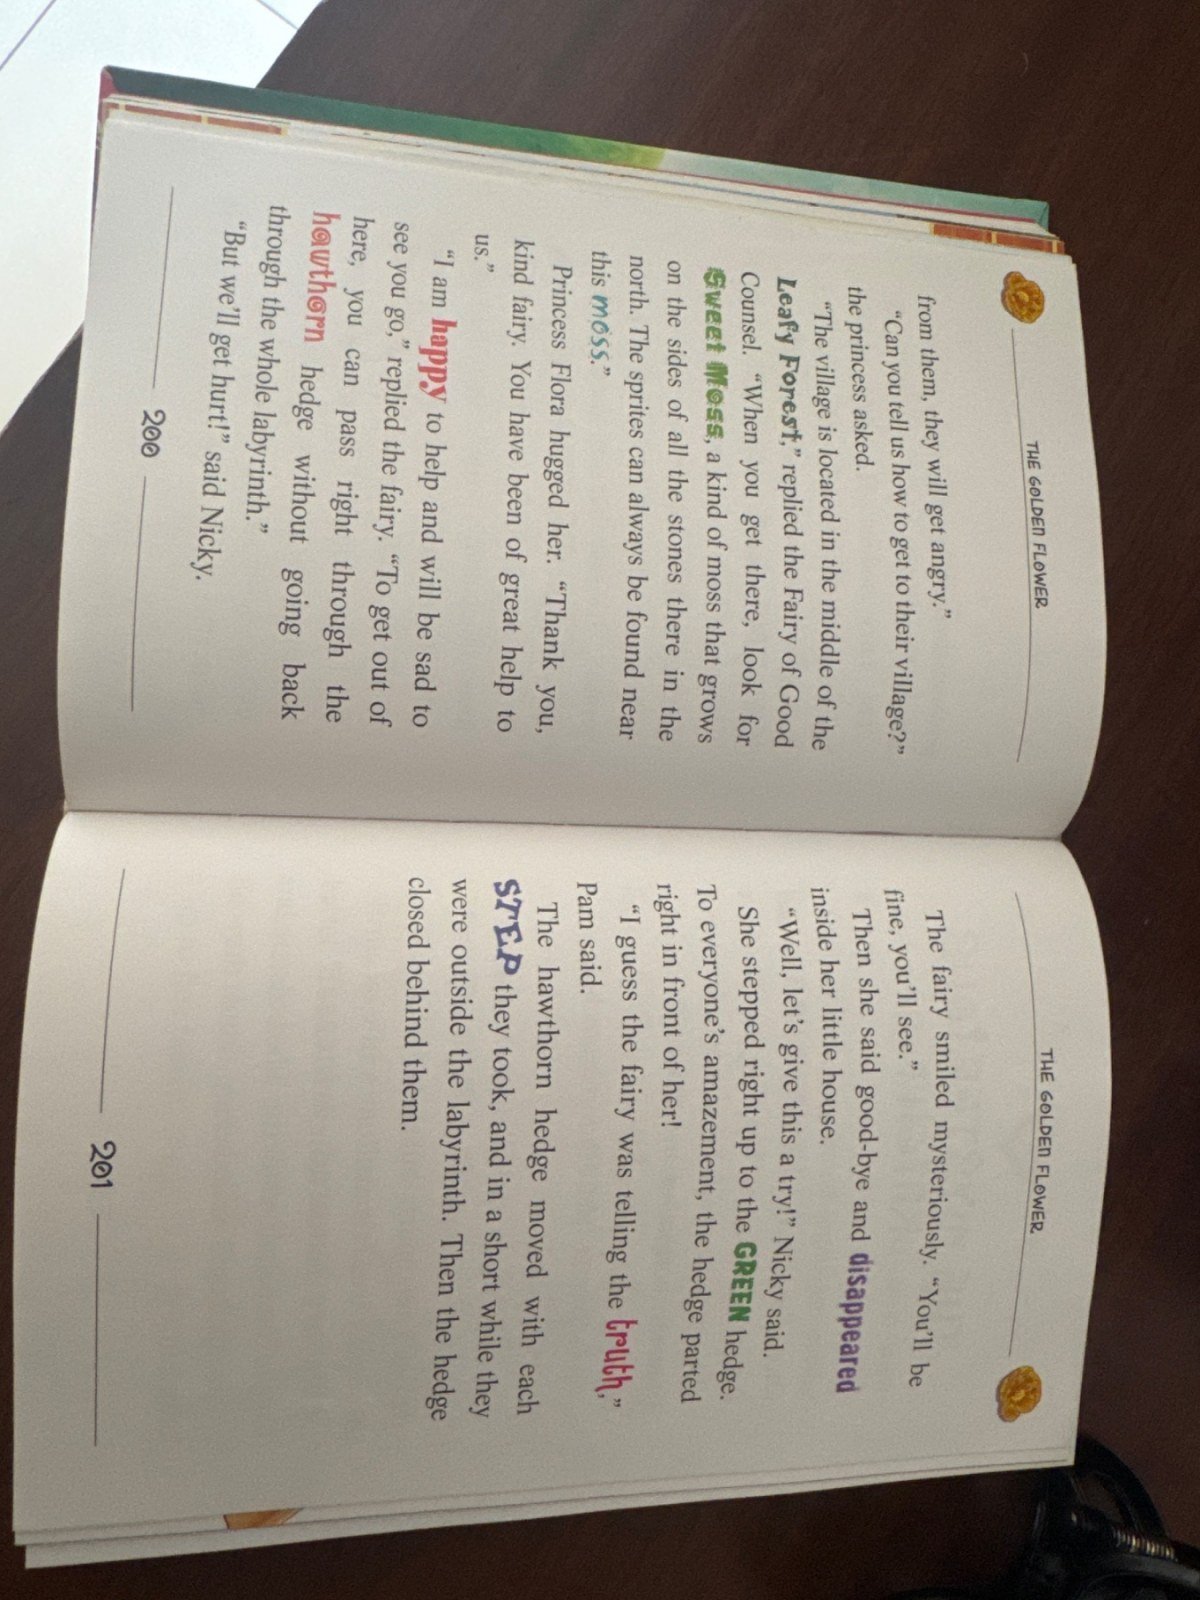 THE GOLDEN FLOWER
from them, they will get angry.”
“Can you tell us how to get to their village?”
the princess asked.
“The village is located in the middle of the
Leafy Forest,” replied the Fairy of Good
Counsel. “When you get there, look for
Sweet Moss, a kind of moss that grows
on the sides of all the stones there in the
north. The sprites can always be found near
this moss.”
Princess Flora hugged her. “Thank you,
kind fairy. You have been of great help to
us.”
“I am happy to help and will be sad to
see you go,” replied the fairy. “To get out of
here, you can pass right through the
hawthorn hedge without going back
through the whole labyrinth.”
“But we’ll get hurt!” said Nicky.
200
THE GOLDEN FLOWER
The fairy smiled mysteriously. “You’ll be
fine, you’ll see.”
Then she said good-bye and disappeared
inside her little house.
“Well, let’s give this a try!” Nicky said.
She stepped right up to the GREEN hedge.
To everyone’s amazement, the hedge parted
right in front of her!
“I guess the fairy was telling the truth,”
Pam said.
The hawthorn hedge moved with each
STEP they took, and in a short while they
were outside the labyrinth. Then the hedge
closed behind them.
201